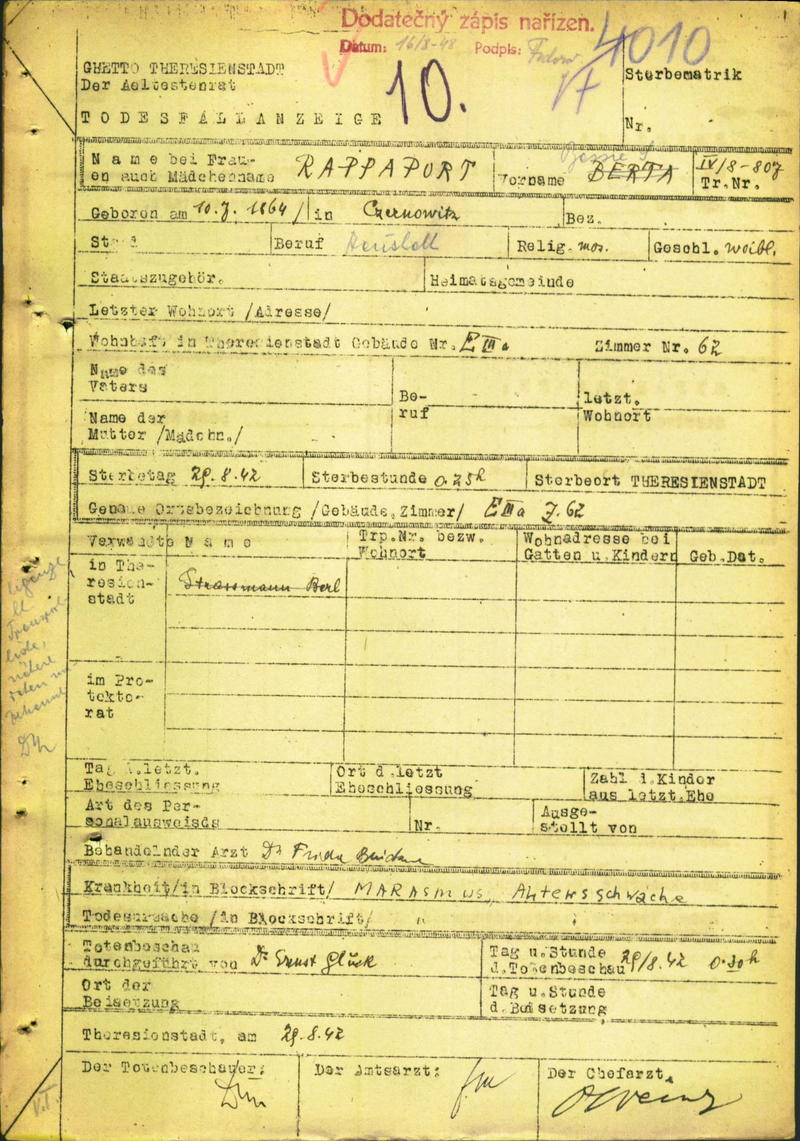 Dodatečný zápis nařízen.
Datum: 16/8-48 Podpis:
4010
GHETTO THERESIENSTADT
Der Aeltestenrat
10.
Sterbematrik
TODESFALLANZEIGE
Nr.
Name bei Frau-
en auch Mädchenname RAPPAPORT Vorname BERTA IV/8-807
Tr.Nr.
Geboren am 10.7.1864 /in Czernowitz Bez.
Beruf Relig. mos. Geschl. weibl.
Staatszugehör. Heimatsgemeinde
Letzter Wohnort /Adresse/
Wohnhaft in Theresienstadt Gebäude Nr. E III a Zimmer Nr. 62
Name des
Vaters Be-
ruf letzt.
Wohnort
Name der
Mutter /Mädchn./
Sterbetag 29.8.42 Sterbestunde 0.25h Sterbeort THERESIENSTADT
Genaue Ortsbezeichnung /Gebäude, Zimmer/ E III a Z. 62
Verwandte Name Trp.Nr. bezw.
Wohnort Wohnadresse bei
Gatten u. Kindern Geb. Dat.
in The-
resien-
stadt Strassmann Berl
im Pro-
tekto-
rat
Tag d.letzt.
Eheschliessung Ort d.letzt
Eheschliessung Zahl d.Kinder
aus letzt.Ehe
Art des Per-
sonalausweises Nr. Ausge-
stellt von
Behandelnder Arzt Dr Frieda
Krankheit/in Blockschrift/ MARASMUS, Altersschwäche
Todesursache /in Blockschrift/ "
Totenbeschau
durchgeführt von Dr Ernst Glück Tag u.Stunde
d.Totenbeschau 29/8.42 0.30h
Ort der
Beisetzung Tag u.Stunde
d.Beisetzung
Theresienstadt, am 29.8.42
Der Totenbeschauer: Der Amtsarzt: Der Chefarzt.